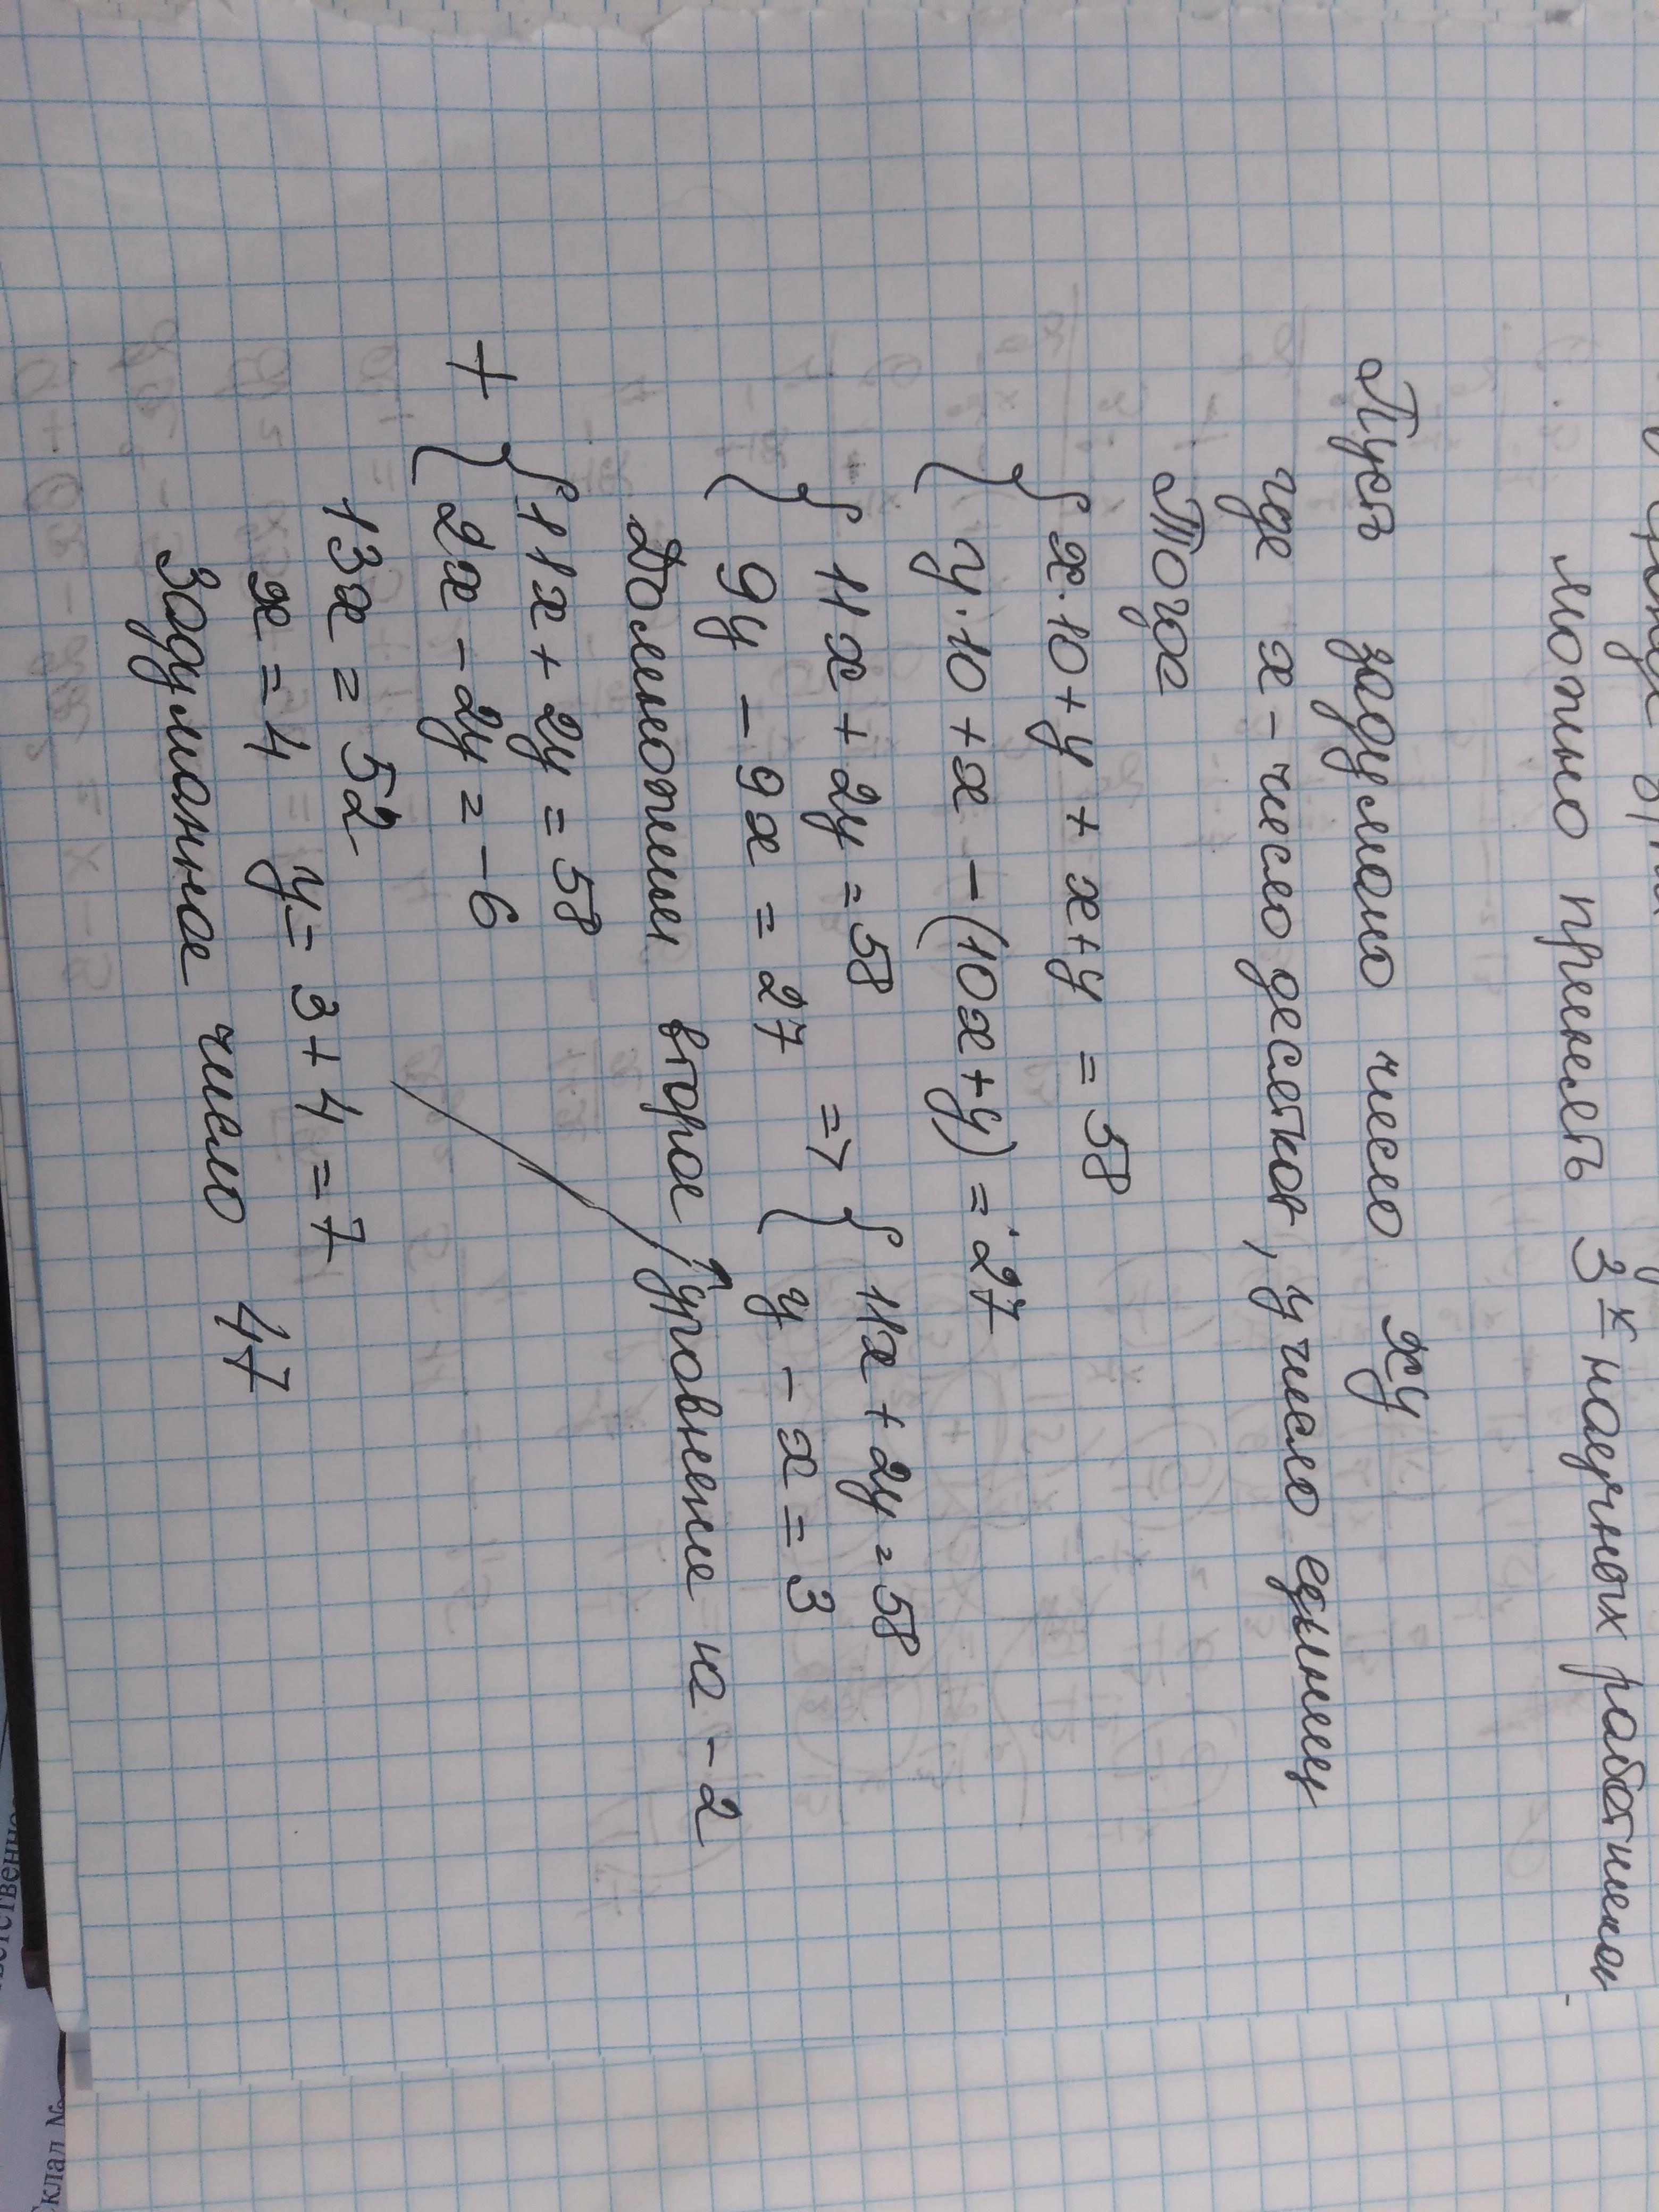 можно принять 3х научных работников
Пусть задумано число xy
где x - число десятков, y число единиц
Тогда
{ x·10 + y + x + y = 58
{ y·10 + x - (10x + y) = 27
{ 11x + 2y = 58
{ 9y - 9x = 27 => { 11x + 2y = 58
{ y - x = 3
Домножим второе уравнение на -2
+ { 11x + 2y = 58
{ 2x - 2y = -6
13x = 52
x = 4 y = 3 + 4 = 7
Задуманное число 47
Склад №